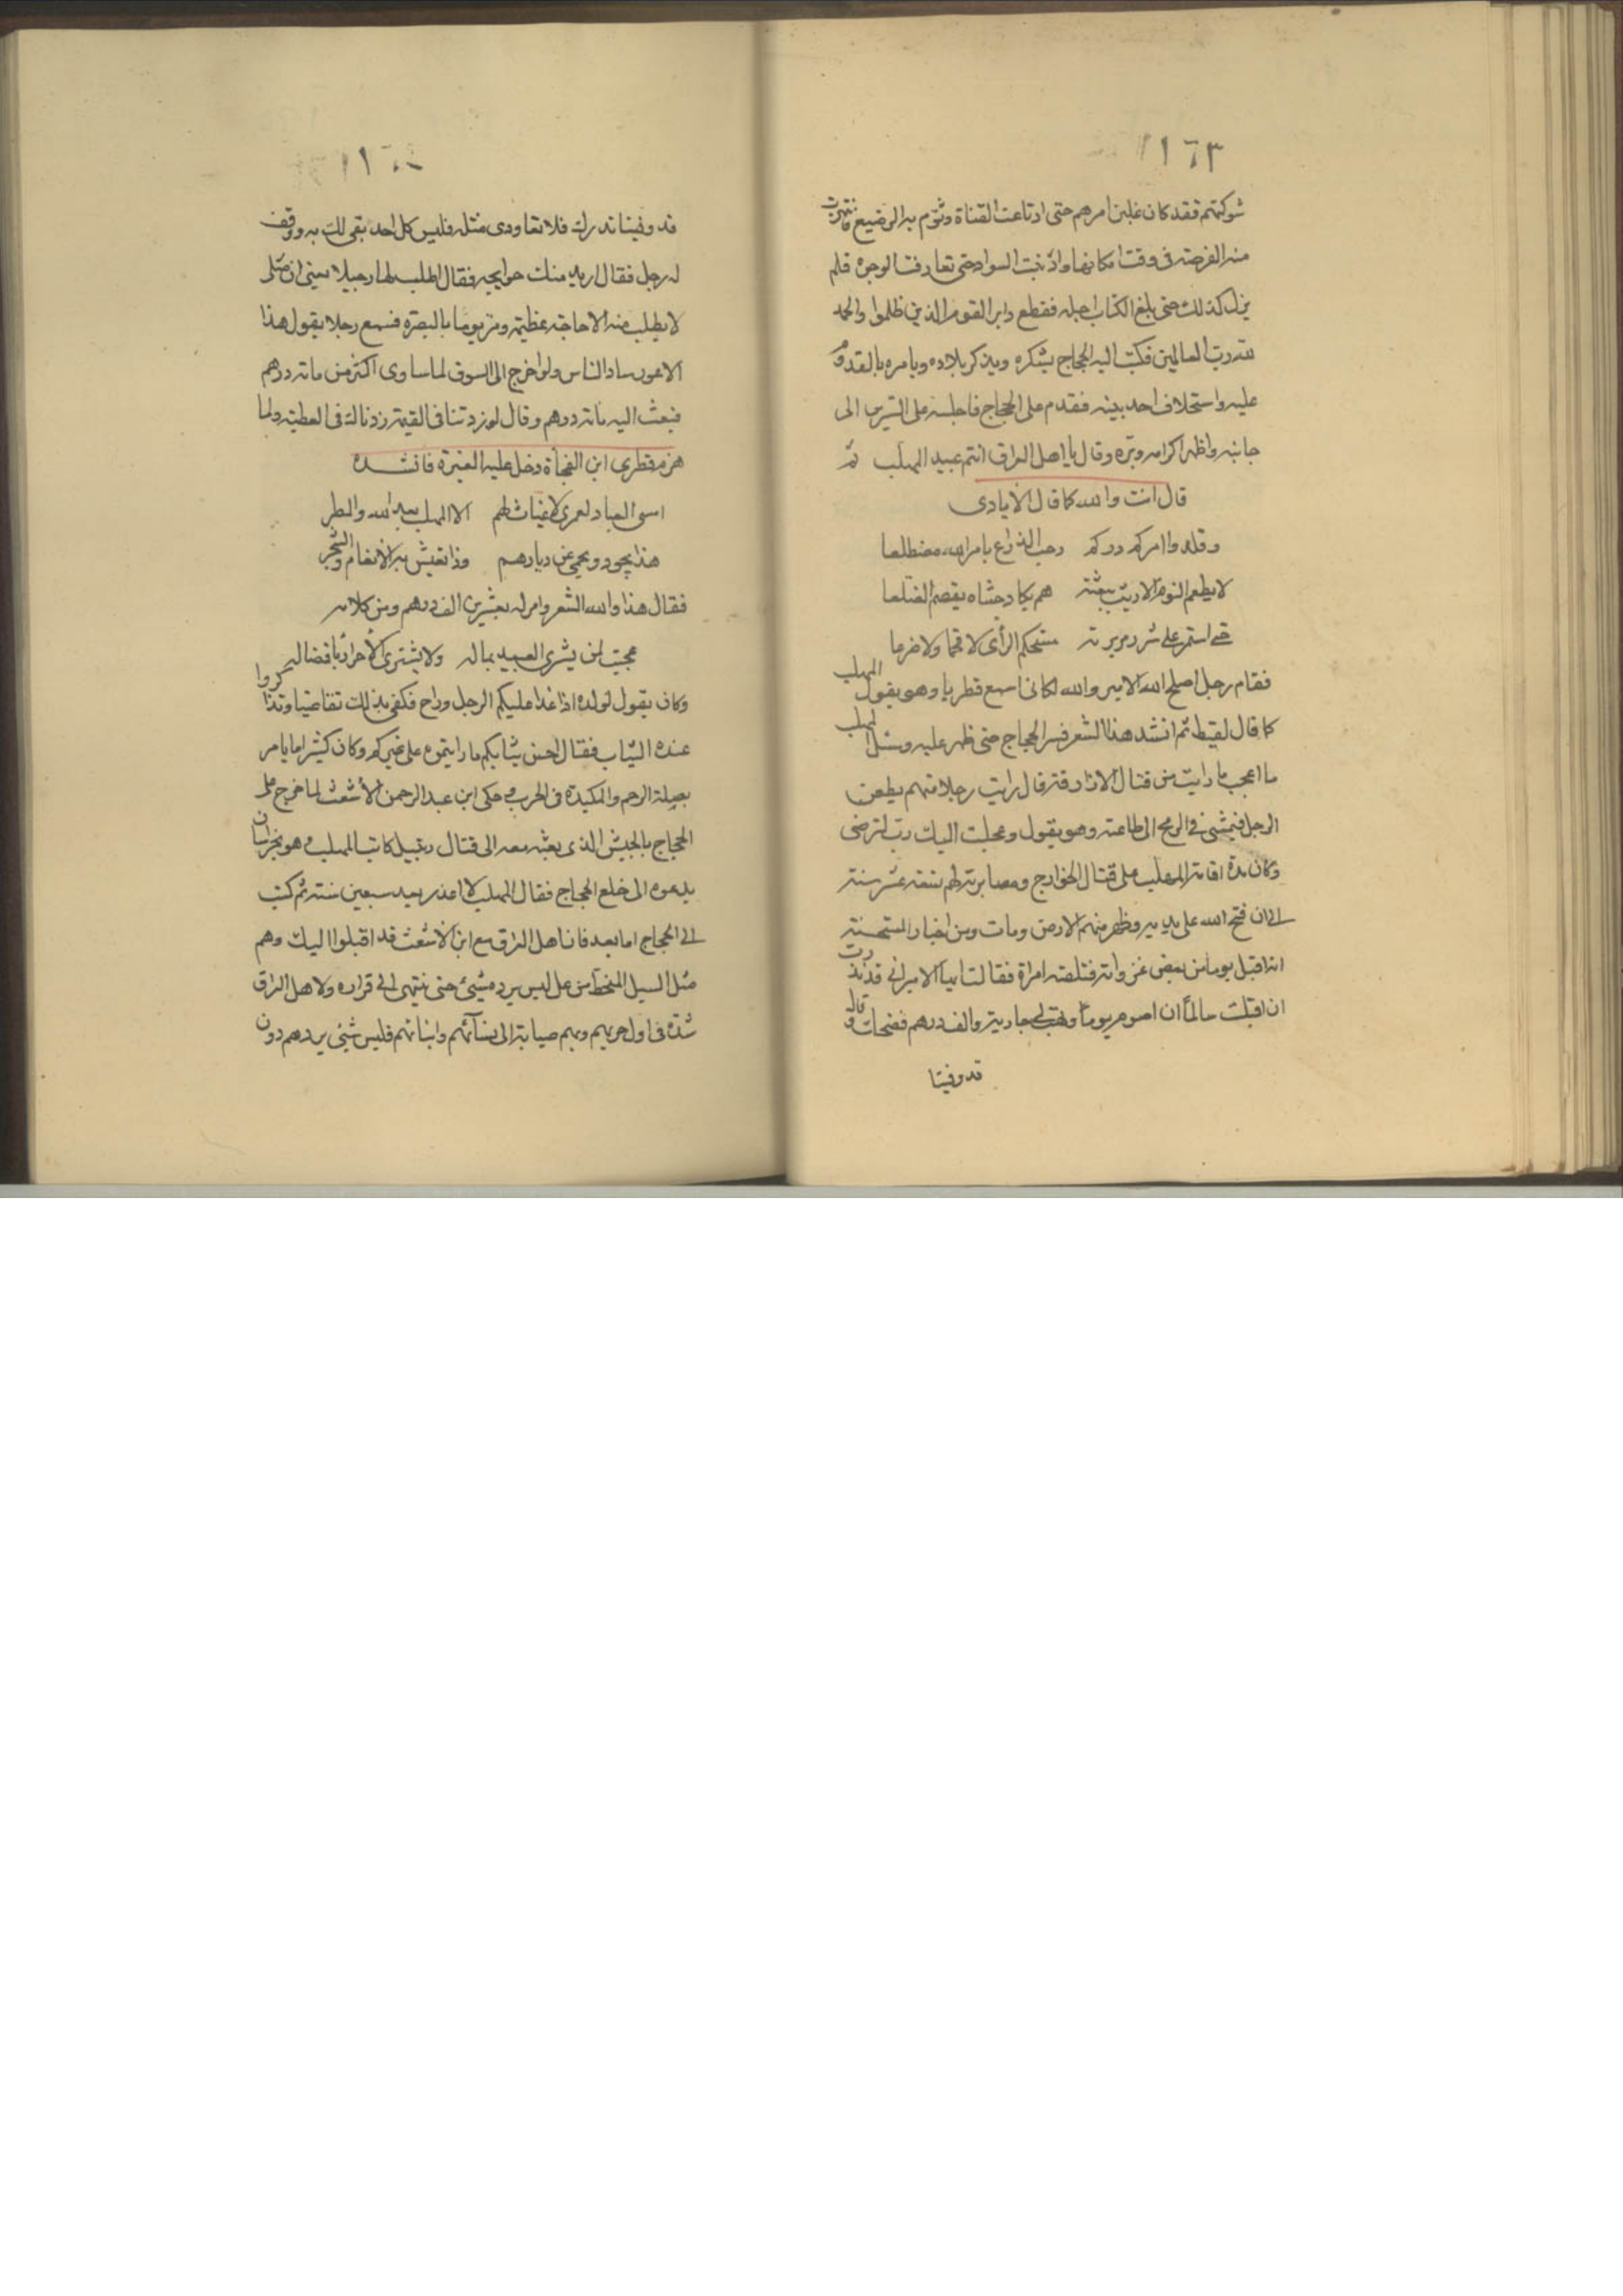 ١٦٣
شوكتهم فقد كان غلبن امرهم حتى ارتاعت القناة ونوم به الرضيع فانتهزت
منه الفرصة فى وقت امكانها واذنبت السواد حتى تعارفت الوجوه فلم
يزل كذلك حتى بلغ الكتاب اجله فقطع دابر القوم الذين ظلموا والحمد
لله رب العالمين فكتب اليه الحجاج يشكره ويذكر بلاده ويامره بالقدوم
عليه واستخلاف احد بنيه فقدم على الحجاج فاجلسه على السرير الى
جانبه واظهر اكرامه وبره وقال يا اهل العراق انتم عبيد المهلب ثم
قال انت والله كما قال الايادى
وقلدوا امركم دركم رحب الذراع بامر الله مضطلعا
لا يطعم النوم الا ريث يبعثه هم يكاد حشاه يقصم الضلعا
حتى استمر على شرر مريرته مستحكم الرأى لا قحما ولا ضرعا
فقام رجل اصلح الله الامير والله لكانى اسمع قطريا وهو يقول المهلب
كما قال لقيط ثم انشد هذا الشعر فسر الحجاج حتى ظهر عليه وسئل المهلب
ما اعجب ما رايت من قتال الازارقة قال رايت رجلا منهم يطعن
الرجل فيمشى فى الرمح الى طاعنه وهو يقول وعجلت اليك رب لترضى
وكان مدة اقامة المهلب على قتال الخوارج ومصابرته لهم تسعة عشر سنة
الى ان فتح الله على يديه وظهر منهم الارض ومات ومن اخباره المستحسنة
انه اقبل يوما من بعض غزواته فتلقته امراة فقالت ايها الامير انى قد نذرت
ان اقبلت سالما ان اصوم يوما وتهب لى جارية والف درهم فضحك وقال
قد وفينا
قد وفينا نذرك فلا تعاودى مثله فليس كل احد يفى لك به ووقف
له رجل فقال اريد منك حويجه فقال اطلب لها رجيلا يعنى ان مثلى
لا يطلب منه الا حاجة عظيمة ومر يوما بالبصره فسمع رجلا يقول هذا
الاعور ساد الناس ولو اخرج الى السوق لما ساوى اكثر من مائة درهم
فبعث اليه مائة درهم وقال لو زدتنا فى القيمة زدنا لك فى العطية ولما
هزم قطرى ابن الفجأة دخل عليه المغيره فانشده
امسى العباد لعمرى لا غياث لهم الا المهلب بعد الله والمطر
هذا يجود ويحمى عن ديارهم وذا تعيش به الانعام والشجر
فقال هذا والله الشعر وامر له بعشرين الف درهم ومن كلامه
عجبت لمن يشرى العبيد بماله ولا يشترى الاحرار بافضاله
وكان يقول لولده اذا غدا عليكم الرجل وراح فكفى بذلك تقاضيا وتذاكروا
عنده الثياب فقال احسن ثيابكم ما رايتموه على غيركم وكان كثيرا ما يامر
بصلة الرحم والمكيدة فى الحرب حكى ابن عبد الرحمن الاشعث لما خرج على
الحجاج بالجيش الذى بعثه معه الى قتال رتبيل كاتب المهلب وهو بخراسان
يدعوه الى خلع الحجاج فقال المهلب لا اغدر بعد سبعين سنة ثم كتب
الى الحجاج اما بعد فان اهل العراق مع ابن الاشعث قد اقبلوا اليك وهم
مثل السيل المنحط من عل ليس يرده شيئ حتى ينتهى الى قراره ولاهل العراق
شدة فى اول حربهم وبهم صبابة الى نسآئهم وابنائهم فليس شيئ يردهم دون